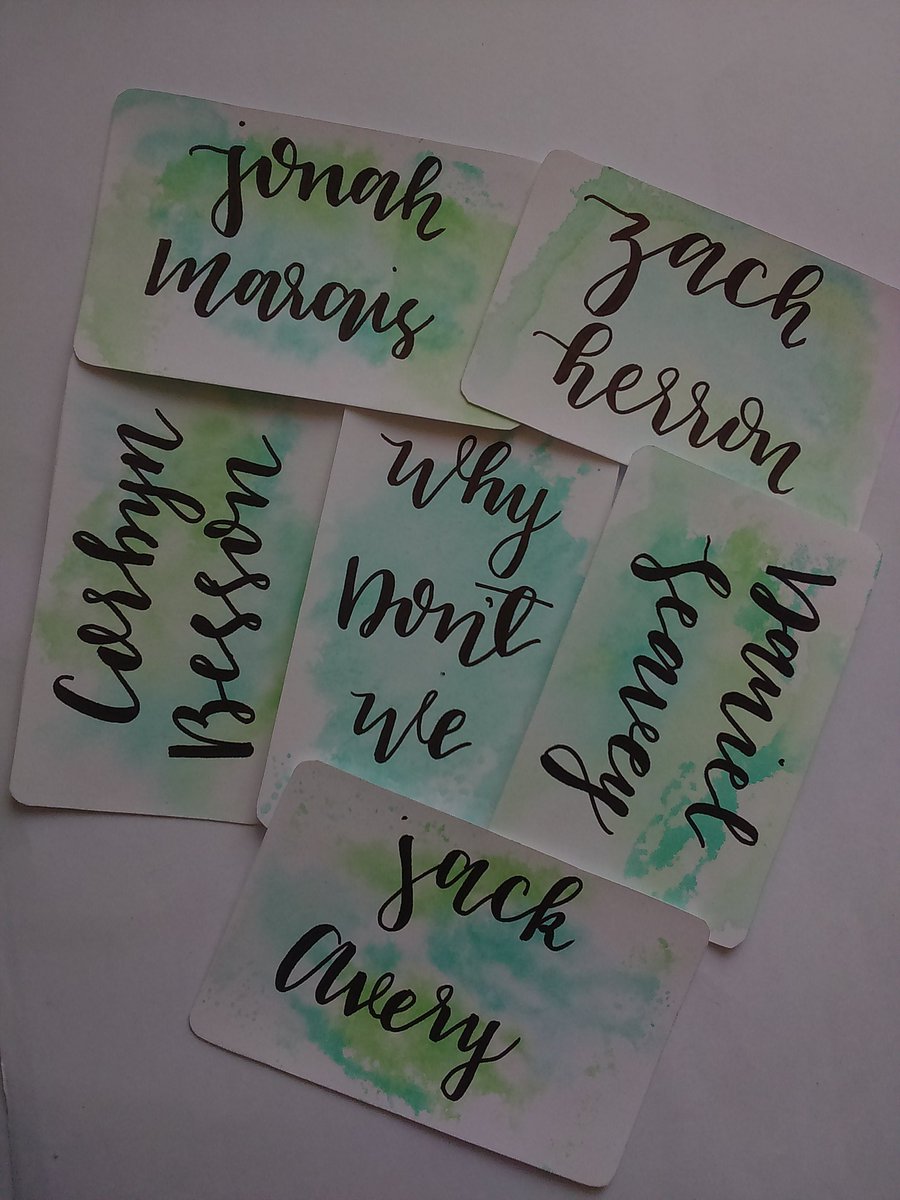 Jonah
Marais
Zach
Herron
Corbyn
Besson
Why
Don't
We
Daniel
Seavey
Jack
Avery